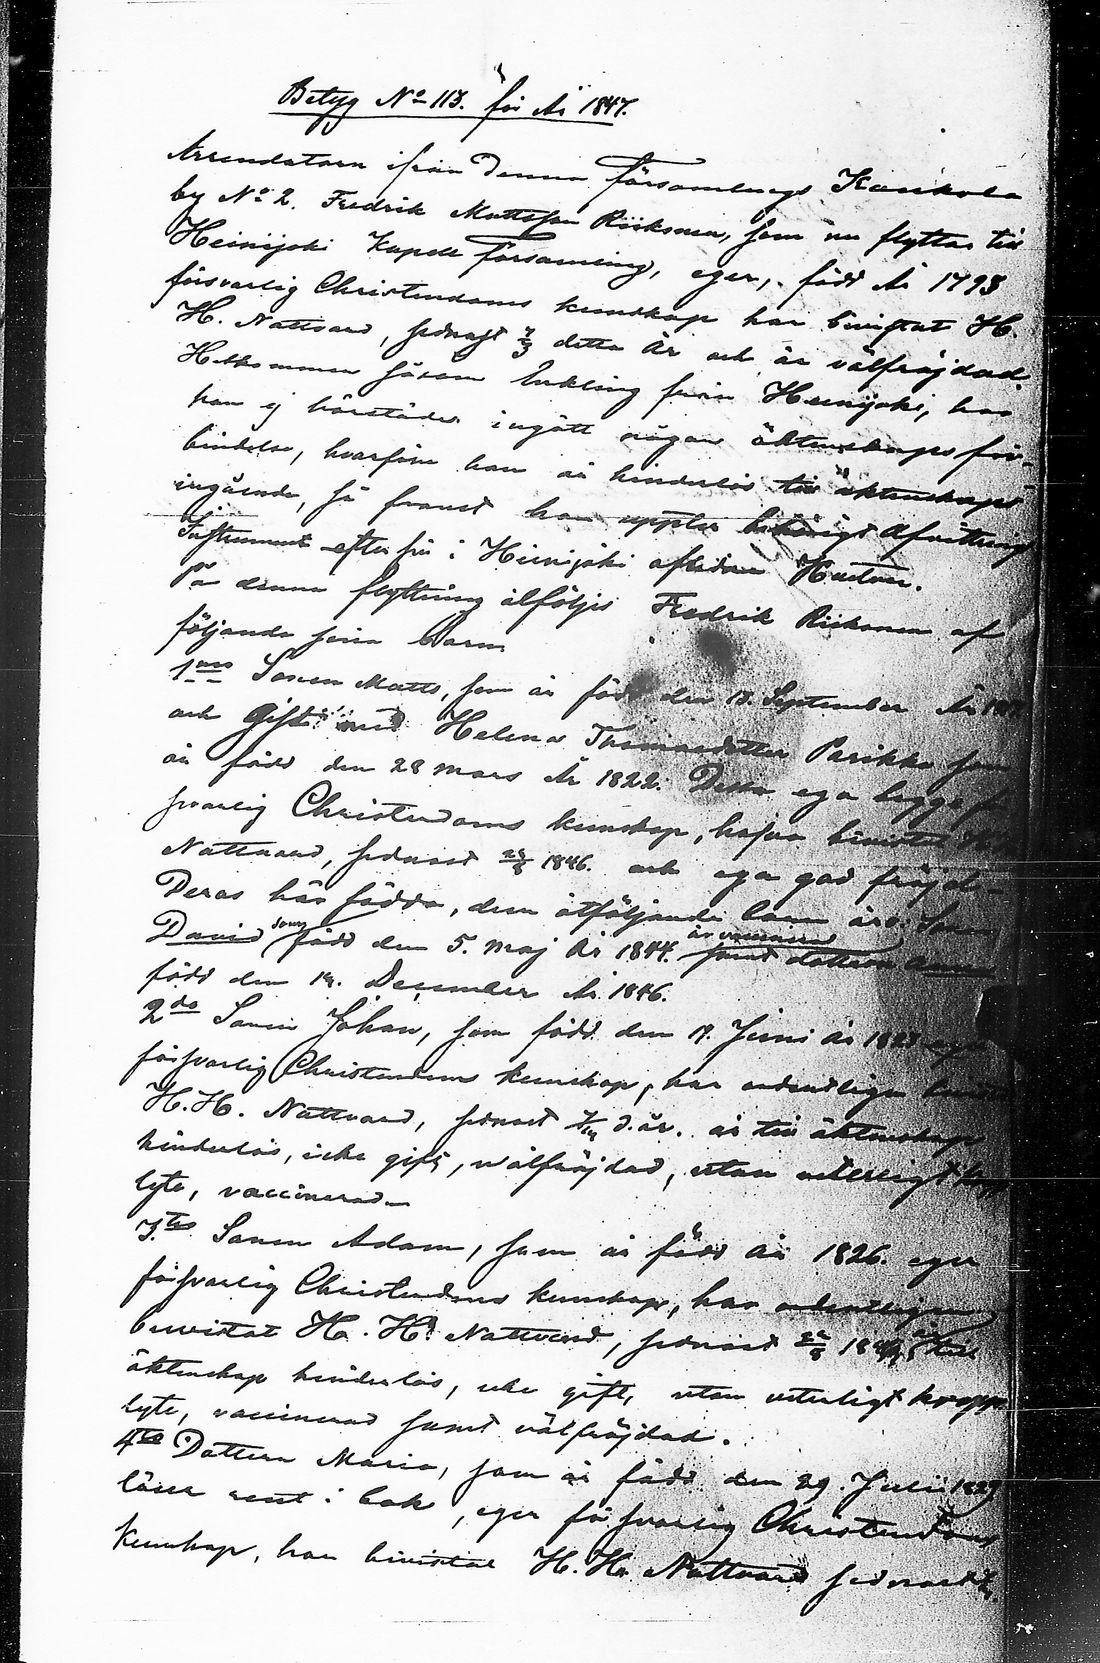 Betyg No 113. för År 1847.
Arrendatorn ifrån denna Församlings Kaukola
by No 2. Fredrik Mattsson Riikonen, som nu flyttar till
Heinijoki Kapell Församling, eger, född År 1793
försvarlig Christendoms kunskap har bivistat H.
H. Nattvard, sednast 7/3 detta År och är välfräjdad.
Hitkommen såsom Enkling från Heinijoki, har
han ej härstädes ingått någon äktenskaps för-
bindelse, hvarföre han är hinderlös till äktenskaps
ingående, så framt han uppler behörigt Afvittrings
Instrument efter sin i Heinijoki aflidna Hustru.
På denna flyttning åtföljes Fredrik Riikonen af
följande sina barn
1mo Sonen Matts, som är född den 18. September År
och Gift med Helena Thomasdotter Parikka som
är född den 28 Mars År 1822. Dessa ega begge
svarlig Christendoms kunskap, hafva bivistat
Nattvard, sednast 1846. och ega god fräjd.
Deras här födda, dem åtföljande barn äro: Sonen
David som född den 5. Maj År 1844. är vaccinerad samt dottren Anna
född den 14. December År 1846.
2do Sonen Johan, som född den 17. Juni År
försvarlig Christendoms kunskap, har ordentligen
H.H. Nattvard, sednast d.år. är till äktenskap
hinderlös, icke gift, välfräjdad, utan veterligt
lyte, vaccinerad
3tio Sonen Adam, som är född År 1826. eger
försvarlig Christendoms kunskap, har ordentligen
bevistat H. H. Nattvard, sednast är till
äktenskap hinderlös, icke gift, utan veterligt kropps
lyte, vaccinerad samt välfräjdad.
4to Dottern Maria, som är född den 29. Julii 1829
läser rent i bok, eger försvarlig Christendoms
kunskap, har bivistat H. H. Nattvard sednast